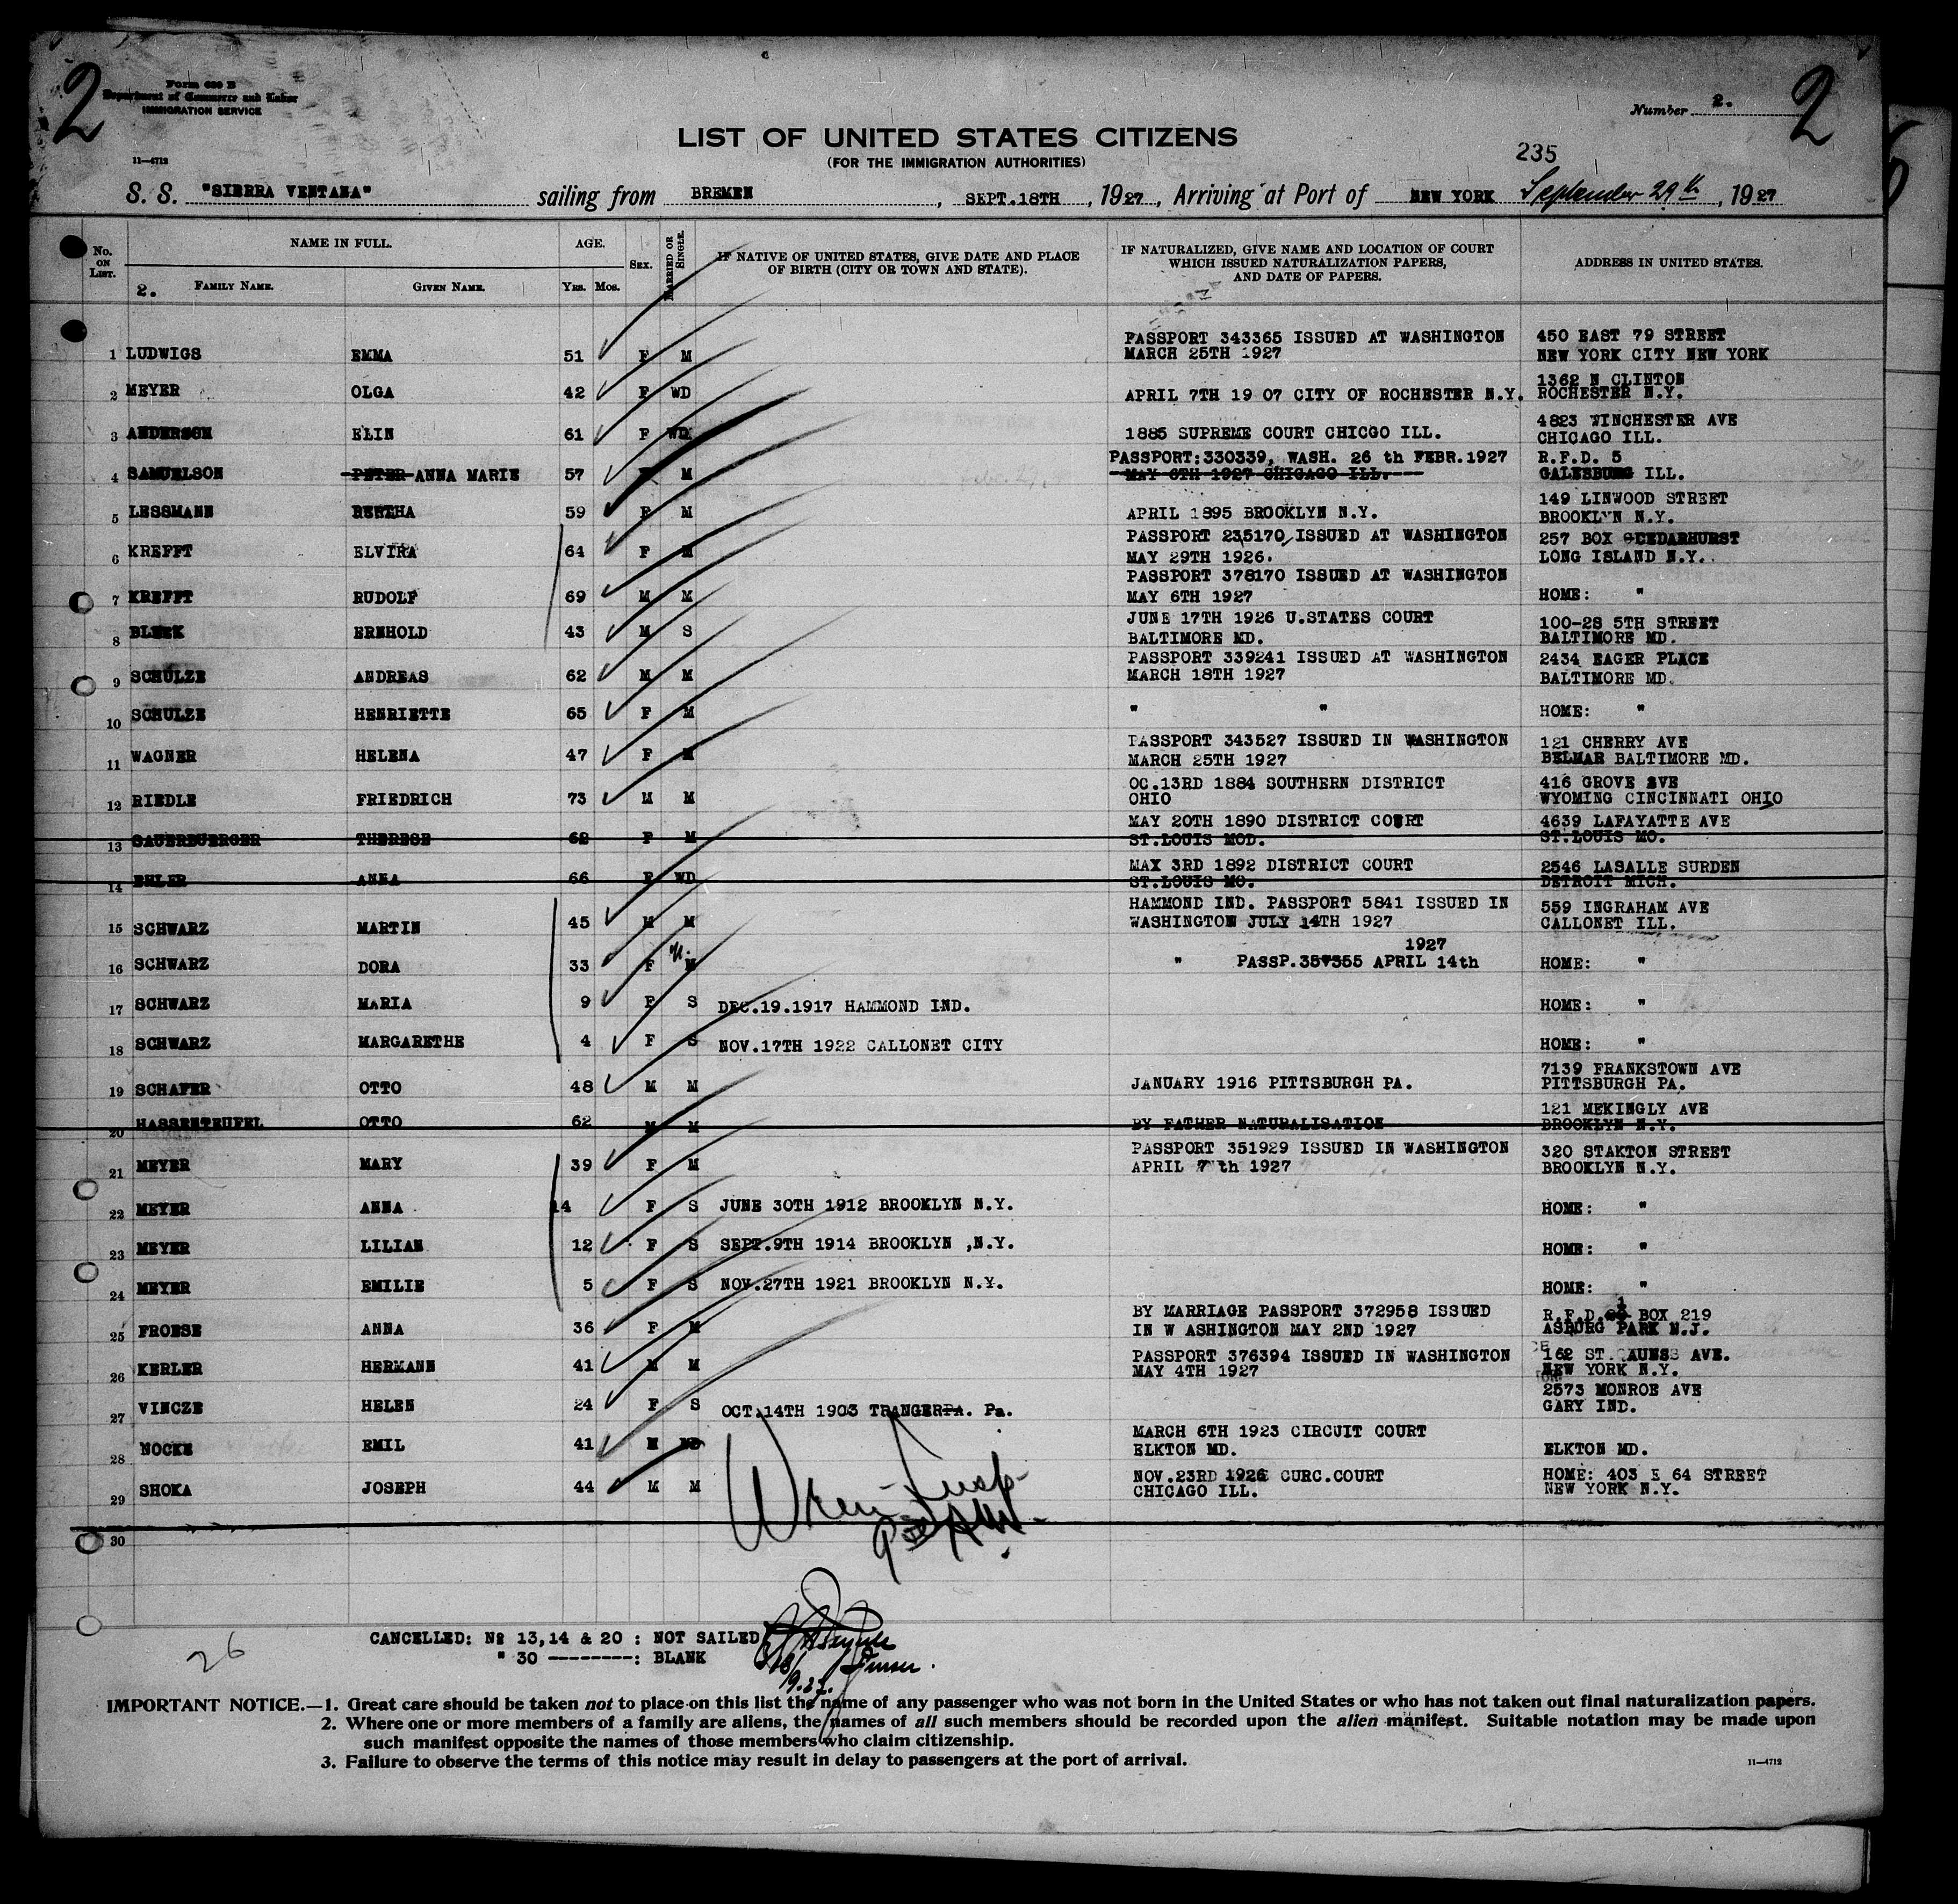 2
Form 630 B
Department of Commerce and Labor
IMMIGRATION SERVICE
11—4712
Number 2.
2
LIST OF UNITED STATES CITIZENS
(FOR THE IMMIGRATION AUTHORITIES)
235
S. S. "SIERRA VENTANA" sailing from BREMEN, SEPT.18TH, 1927, Arriving at Port of NEW YORK September 29th, 1927
No. ON LIST. NAME IN FULL. AGE. SEX. MARRIED OR SINGLE. IF NATIVE OF UNITED STATES, GIVE DATE AND PLACE OF BIRTH (CITY OR TOWN AND STATE). IF NATURALIZED, GIVE NAME AND LOCATION OF COURT WHICH ISSUED NATURALIZATION PAPERS, AND DATE OF PAPERS. ADDRESS IN UNITED STATES.
2. FAMILY NAME. GIVEN NAME. YRS. MOS.
1 LUDWIGS EMMA 51 F M PASSPORT 343365 ISSUED AT WASHINGTON MARCH 25TH 1927 450 EAST 79 STREET NEW YORK CITY NEW YORK
2 MEYER OLGA 42 F WD APRIL 7TH 19 07 CITY OF ROCHESTER N.Y. 1362 N CLINTON ROCHESTER N.Y.
3 ANDERSON ELIN 61 F WD 1885 SUPREME COURT CHICGO ILL. 4823 WINCHESTER AVE CHICAGO ILL.
4 SAMUELSON PETER ANNA MARIE 57 M PASSPORT:330339, WASH. 26 th FEBR.1927 MAY 6TH 1927 CHICAGO ILL. R.F.D. 5 GALESBURG ILL.
5 LESSMANN BERTHA 59 F M APRIL 1895 BROOKLYN N.Y. 149 LINWOOD STREET BROOKLYN N.Y.
6 KREFFT ELVIRA 64 F M PASSPORT 235170 ISSUED AT WASHINGTON MAY 29TH 1926. 257 BOX CEDARHURST LONG ISLAND N.Y.
7 KREFFT RUDOLF 69 M M PASSPORT 378170 ISSUED AT WASHINGTON MAY 6TH 1927 HOME: "
8 BLEEK ERNHOLD 43 M S JUNE 17TH 1926 U.STATES COURT BALTIMORE MD. 100-28 5TH STREET BALTIMORE MD.
9 SCHULZE ANDREAS 62 M M PASSPORT 339241 ISSUED AT WASHINGTON MARCH 18TH 1927 2434 EAGER PLACE BALTIMORE MD.
10 SCHULZE HENRIETTE 65 F M " " HOME: "
11 WAGNER HELENA 47 F M PASSPORT 343527 ISSUED IN WASHINGTON MARCH 25TH 1927 121 CHERRY AVE BELMAR BALTIMORE MD.
12 RIEDLE FRIEDRICH 73 M M OC.13RD 1884 SOUTHERN DISTRICT OHIO 416 GROVE AVE WYOMING CINCINNATI OHIO
13 SAUERBUERGER THERESE 62 F M MAY 20TH 1890 DISTRICT COURT ST.LOUIS MOD. 4639 LAFAYATTE AVE ST.LOUIS MO.
14 EHLER ANNA 66 F WD MAX 3RD 1892 DISTRICT COURT ST.LOUIS MO. 2546 LASALLE SURDEN DETROIT MICH.
15 SCHWARZ MARTIN 45 M M HAMMOND IND. PASSPORT 5841 ISSUED IN WASHINGTON JULY 14TH 1927 559 INGRAHAM AVE CALLONET ILL.
16 SCHWARZ DORA 33 F M " PASSP.357355 APRIL 14th 1927 HOME: "
17 SCHWARZ MARIA 9 F S DEC.19.1917 HAMMOND IND. HOME: "
18 SCHWARZ MARGARETHE 4 F S NOV.17TH 1922 CALLONET CITY HOME: "
19 SCHAFER OTTO 48 M M JANUARY 1916 PITTSBURGH PA. 7139 FRANKSTOWN AVE PITTSBURGH PA.
20 HASSENTEUFEL OTTO 62 M M BY FATHER NATURALISATION 121 MEKINGLY AVE BROOKLYN N.Y.
21 MEYER MARY 39 F M PASSPORT 351929 ISSUED IN WASHINGTON APRIL 7th 1927 320 STAKTON STREET BROOKLYN N.Y.
22 MEYER ANNA 14 F S JUNE 30TH 1912 BROOKLYN N.Y. HOME: "
23 MEYER LILIAN 12 F S SEPT.9TH 1914 BROOKLYN ,N.Y. HOME: "
24 MEYER EMILIE 5 F S NOV.27TH 1921 BROOKLYN N.Y. HOME: "
25 FROESE ANNA 36 F M BY MARRIAGE PASSPORT 372958 ISSUED IN W ASHINGTON MAY 2ND 1927 R.F.D. 1 BOX 219 ASBURG PARK N.J.
26 KERLER HERMANN 41 M M PASSPORT 376394 ISSUED IN WASHINGTON MAY 4TH 1927 162 ST. AVE. NEW YORK N.Y.
27 VINCZE HELEN 24 F S OCT.14TH 1903 TRANGERPA. Pa. 2573 MONROE AVE GARY IND.
28 NOCKE EMIL 41 M MARCH 6TH 1923 CIRCUIT COURT ELKTON MD. ELKTON MD.
29 SHOKA JOSEPH 44 M M NOV.23RD 1926 CURC.COURT CHICAGO ILL. HOME: 403 E 64 STREET NEW YORK N.Y.
30
CANCELLED: No 13,14 & 20 : NOT SAILED
" 30 --------: BLANK
Purser.
26
IMPORTANT NOTICE.—1. Great care should be taken not to place on this list the name of any passenger who was not born in the United States or who has not taken out final naturalization papers.
2. Where one or more members of a family are aliens, the names of all such members should be recorded upon the alien manifest. Suitable notation may be made upon
such manifest opposite the names of those members who claim citizenship.
3. Failure to observe the terms of this notice may result in delay to passengers at the port of arrival.
11—4712